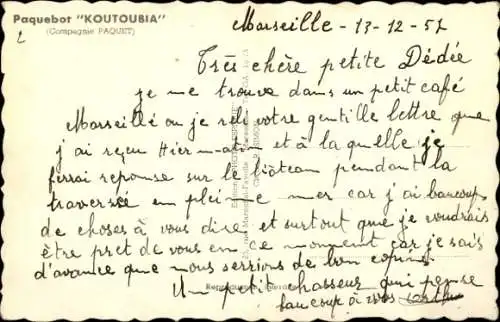 Paquebot "KOUTOUBIA"
(Compagnie PAQUET)
Marseille - 13-12-51
Très chère petite Dédée
je me trouve dans un petit café
Marseille ou je reli votre gentille lettre que
j'ai reçu Hier-matin et à la quelle je
ferrai reponse sur le bateau pendant la
traversée en pleine mer car j'ai baucoup
de choses à vous dire et surtout que je voudrais
être pret de vous en ce moment car je sais
d'avance que nous serrions de bon copins
Un petit chasseur qui pense
baucoup à vous